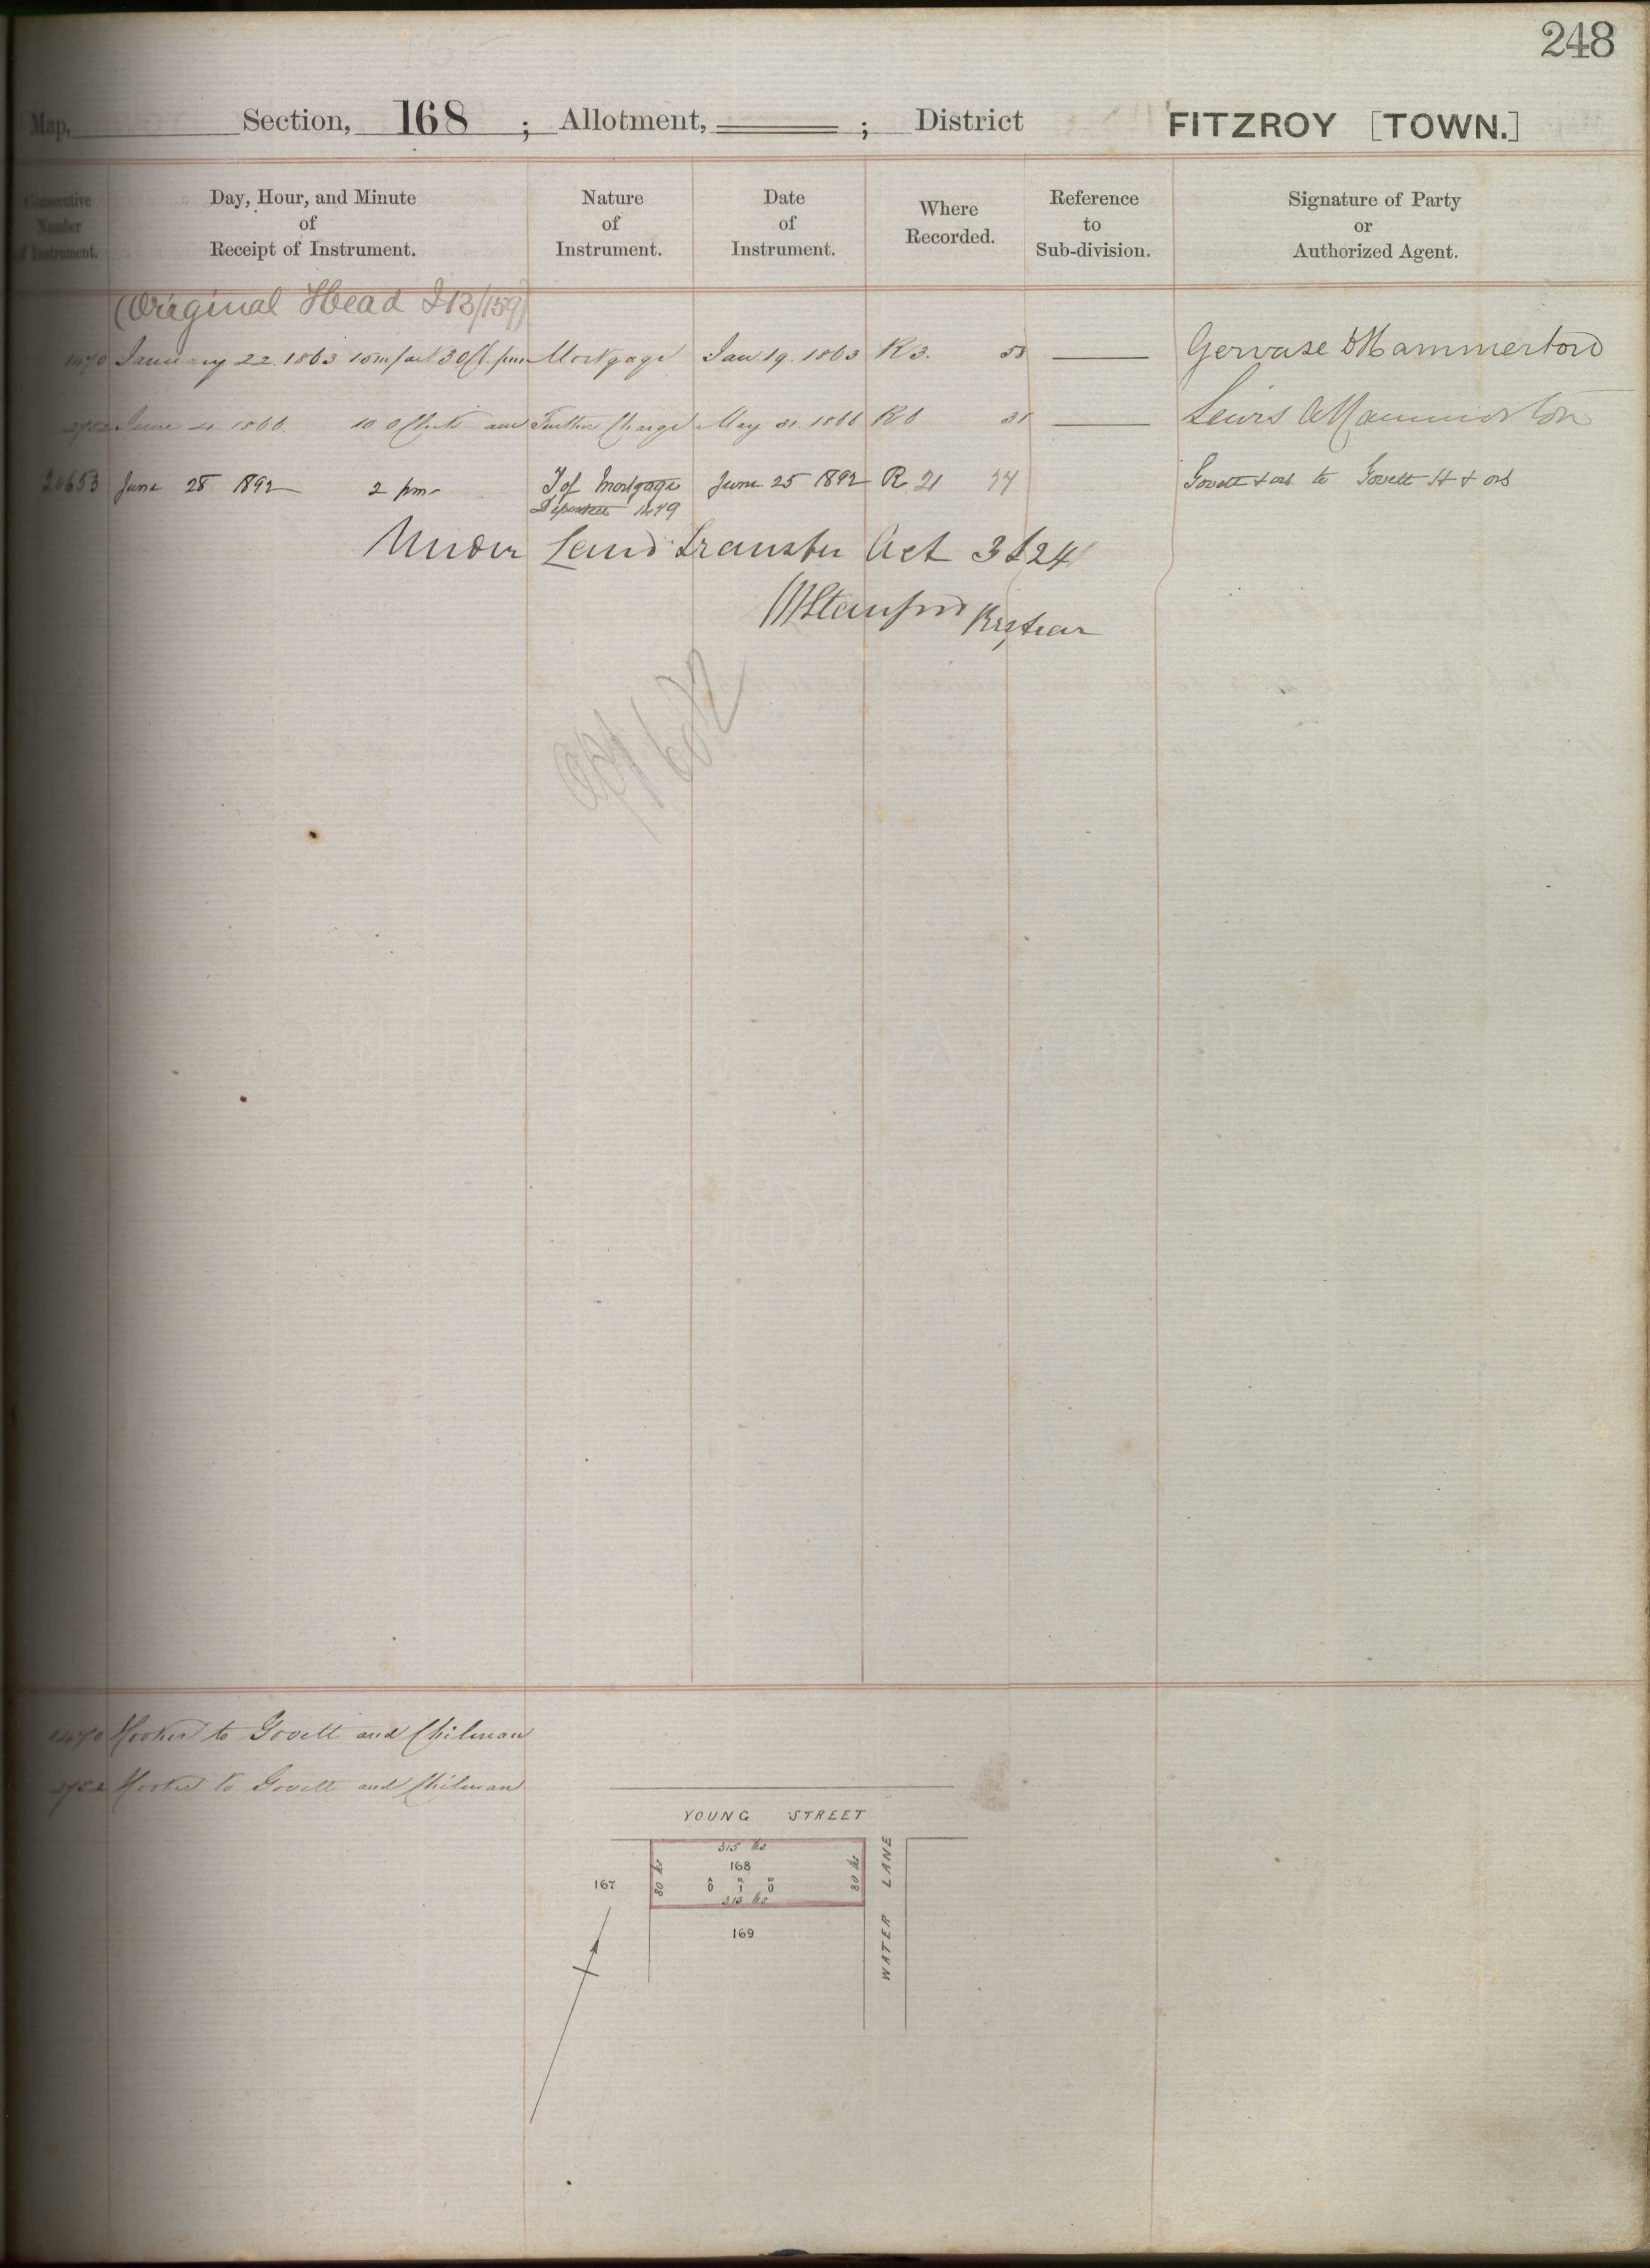 248
Map, Section, 168 ; Allotment, ; District FITZROY [TOWN.]
Consecutive Number of Instrument.
Day, Hour, and Minute of Receipt of Instrument.
Nature of Instrument.
Date of Instrument.
Where Recorded.
Reference to Sub-division.
Signature of Party or Authorized Agent.
(Original Head I 13/159)
1470 January 22. 1863 Mortgage Jan. 19. 1863 R 3. Gervase D Hammerton
2752 June 4 1866 10 O'Clock am Further Charge May 31. 1866 R 6 31 Lewis Hammerton
20653 June 28 1892 2 pm T of Mortgage June 25 1892 R 21 74 Govett & ors to Govett H & ors
Under Land Transfer Act
Registrar
1470 Hooker to Govett and Chilman
2752 Hooker to Govett and Chilman
YOUNG STREET
315 lks
168
80 lks
80 lks
0 1 0
315 lks
167
169
WATER LANE